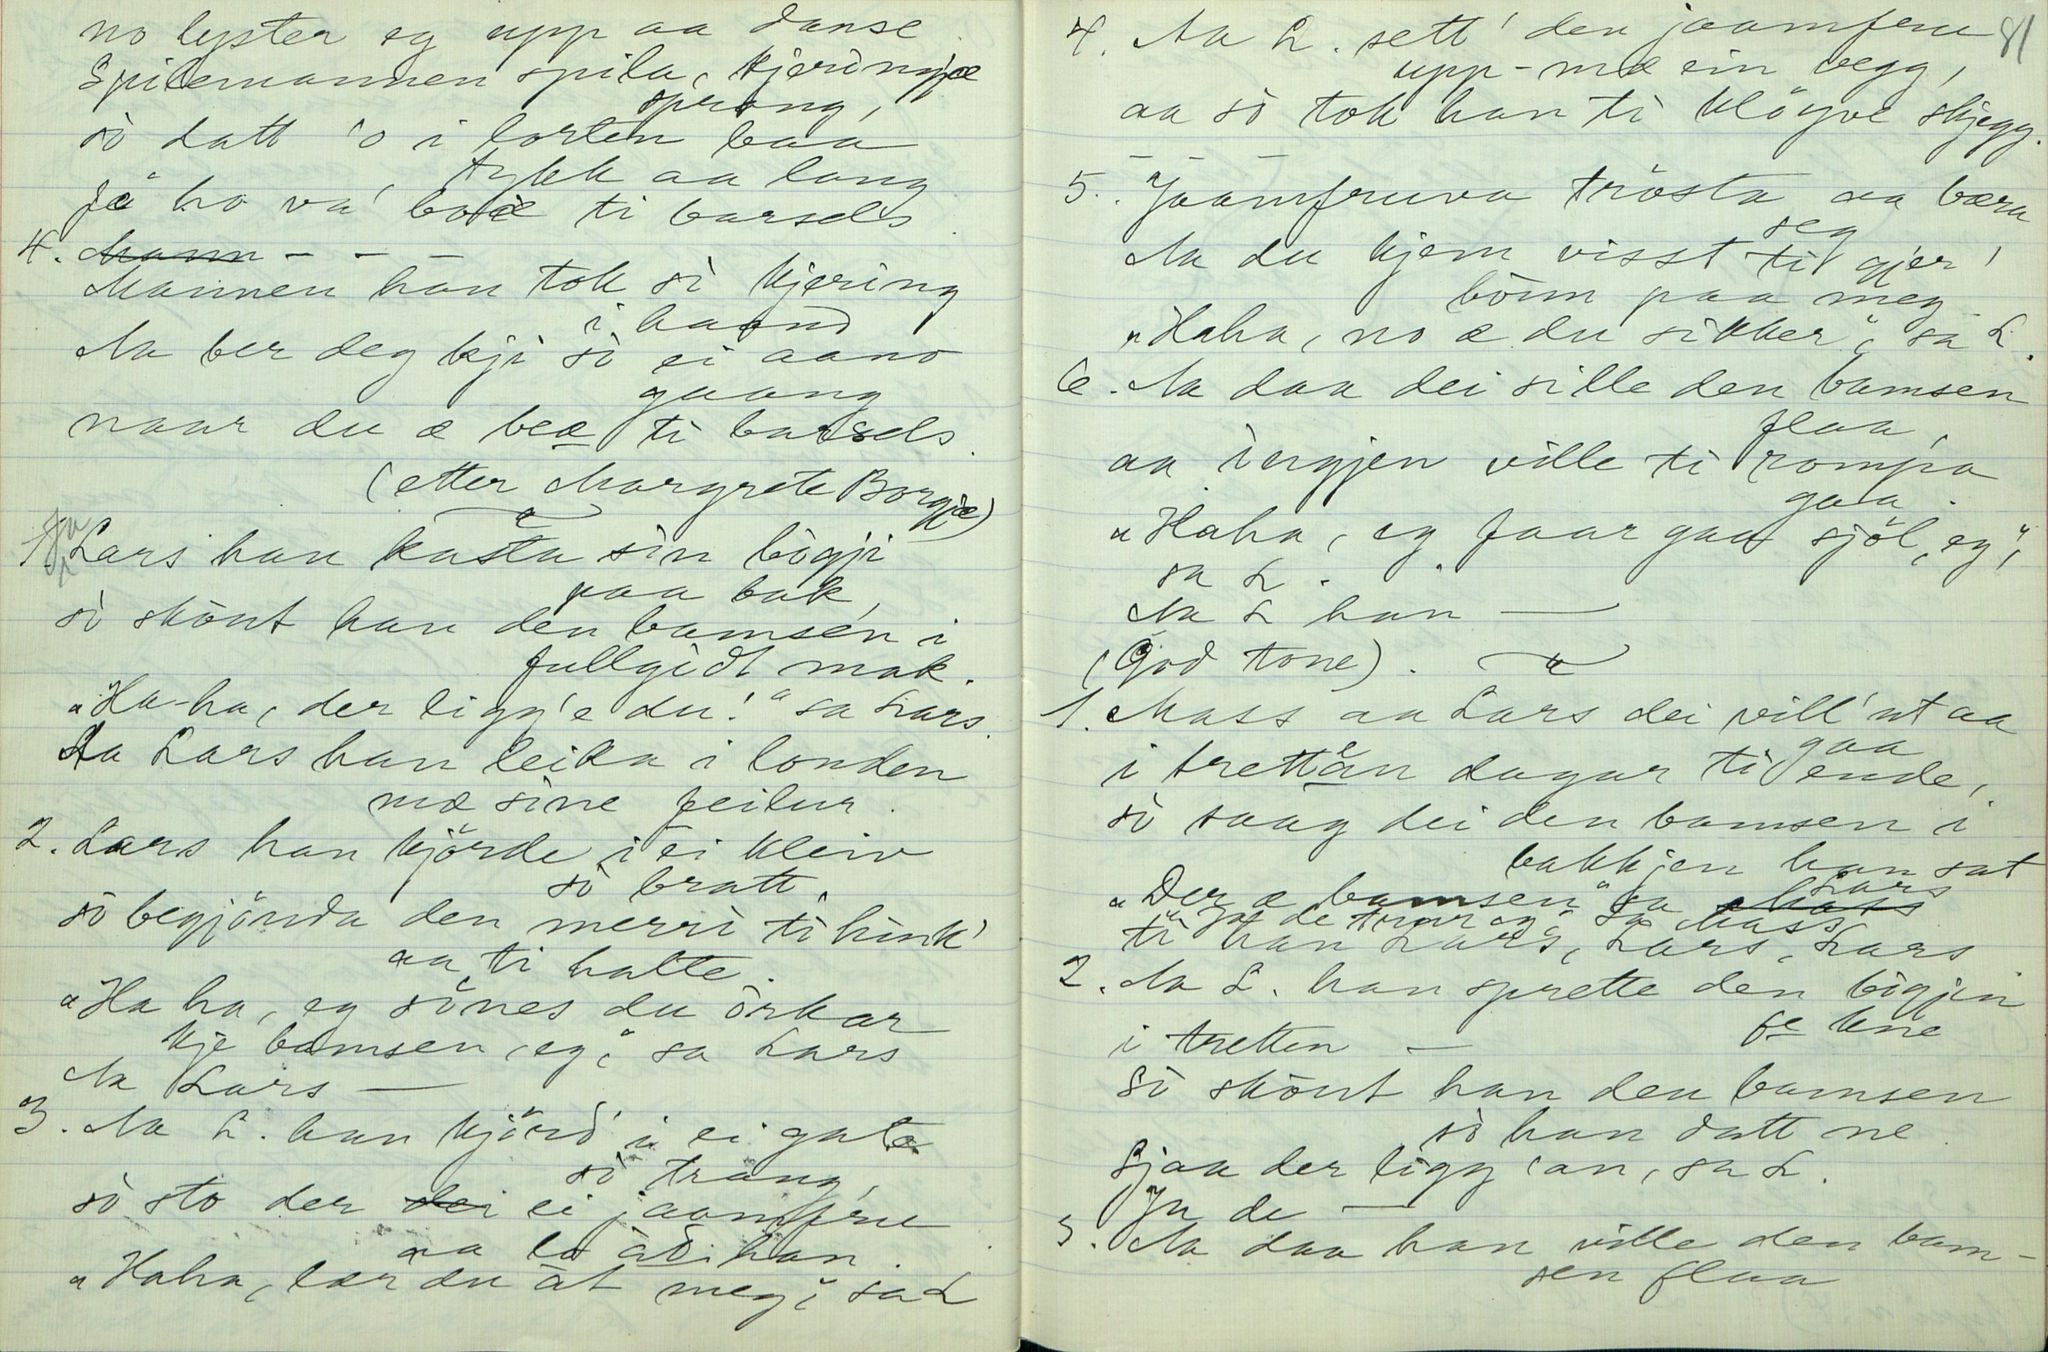 no lyster eg upp aa danse
Spilemannen spila, kjeringjæ
sprang,
so datt 'o i lorten baa
tykk aa lang
ja ho va' boe ti barsels.
4. Mann - - -
Mannen han tok si kjering
i haand
Aa ber deg kji so ei aano
gaang
naar du æ beæ ti barsels.
(etter Margrete Borgje)
1. Lars han kasta sin bogji
paa bak,
so skönt han den bamsen i
fullgidt mak.
"Ha-ha, der ligg'e du!" sa Lars.
Aa Lars han leika i londen
mæ sine peilur.
2. Lars han kjörde i ei kleiv
so bratt,
so begjönda den merri ti hink'
aa ti halte.
"Ha ha, eg sönes du orkar
kje bamsen, eg," sa Lars
Aa Lars —
3. Aa L. han kjörd' i ei gate
so trang,
so sto der dei ei jaamfru
aa lo åt han.
"Haha, lær du åt meg," sa L
81
4. Aa L. sett' den jaamfru
upp-mæ ein vegg,
aa so tok han ti klöyve skjegg.
- - -
5. Jaamfruva trösta aa bæra
seg
Aa du kjem visst ti gjer'
bonn paa meg
"Haha, no æ du sikker", sa L.
6. Aa daa dei sille den bamsen
flaa,
aa ingjen ville ti rompa
gaa.
"Haha, eg faar gaa sjöl, eg",
sa L.
Aa L han —
(God tone).
1. Mass aa Lars dei vill' ut aa
gaa
i trettån dagar ti ende,
so saag dei den bamsen i
bakkjen han sat
"Der æ bamsen" sa Mass Lars
"Ja de trur eg" sa Mass
ti han Lars, Lars, Lars
2. Aa L. han sprette den bogjin
fe kne
i tretten —
So skönt han den bamsen
so han datt ne.
Sjaa der ligg 'an, sa L.
Ja de —
3. Aa daa han ville den bam-
sen flaa